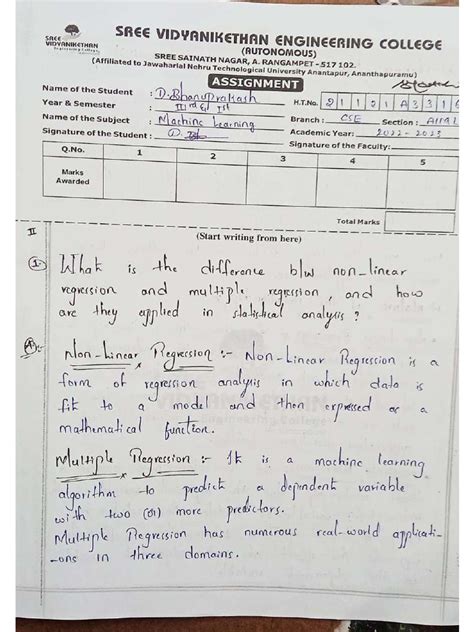 SREE VIDYANIKETHAN ENGINEERING COLLEGE
(AUTONOMOUS)
SREE SAINATH NAGAR, A. RANGAMPET - 517 102.
(Affiliated to Jawaharlal Nehru Technological University Anantapur, Ananthapuramu)
SREE
VIDYANIKETHAN
ASSIGNMENT
Name of the Student : D. BhanuPrakash
H.T.No. 2 1 1 2 1 A 3 3 1 6
Year & Semester : IIIrd & Ist
Branch : CSE Section :
Name of the Subject : Machine Learning
Academic Year: 2022-2023
Signature of the Student :
Signature of the Faculty:
Q.No. 1 2 3 4 5
Marks
Awarded
Total Marks
II
(Start writing from here)
1. What is the difference b/w non-linear
regression and multiple regression, and how
are they applied in statistical analysis?
A. Non-Linear Regression :- Non-Linear Regression is a
form of regression analysis in which data is
fit to a model and then expressed as a
mathematical function.
Multiple Regression :- It is a machine learning
algorithm to predict a dependent variable
with two (or) more predictors.
Multiple Regression has numerous real-world applicati-
-ons in three domains.